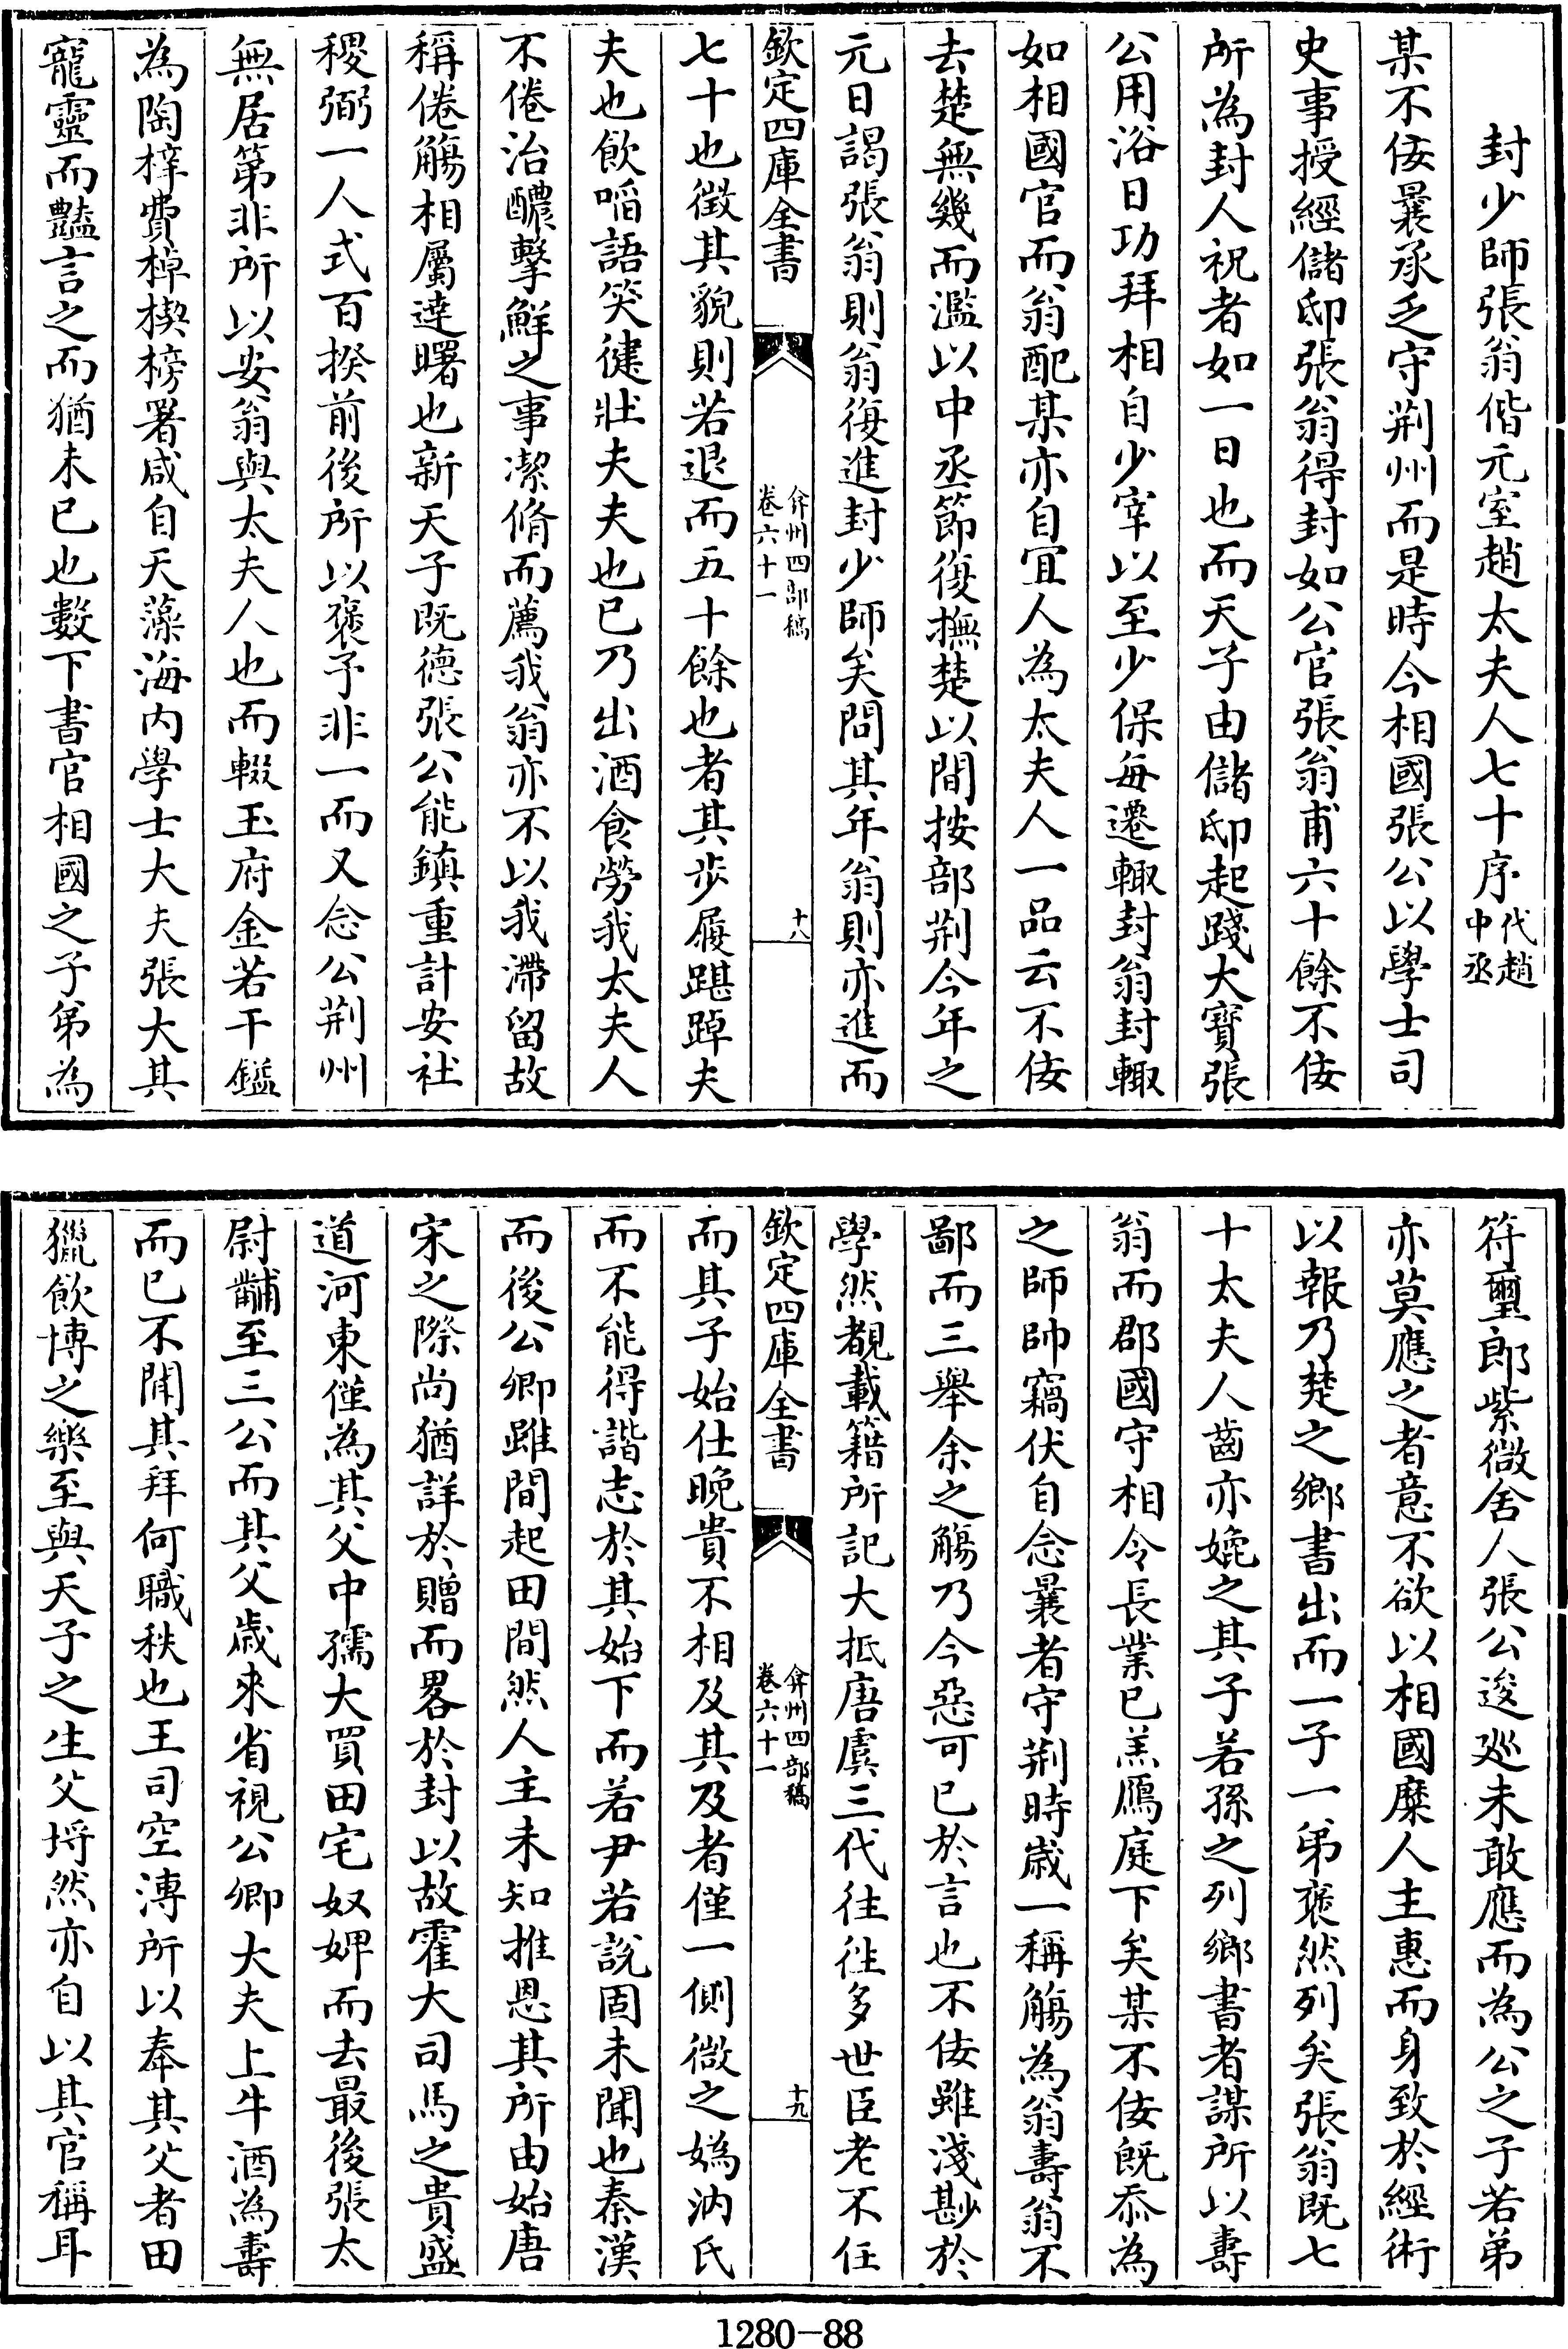 封少師張翁偕元室趙太夫人七十序代趙中丞
某不佞曩承乏守荆州而是時今相國張公以學士司
史事授經儲邸張翁得封如公官張翁甫六十餘不佞
所為封人祝者如一日也而天子由儲邸起踐大寶張
公用浴日功拜相自少宰以至少保每遷輙封翁封輙
如相國官而翁配某亦自宜人為太夫人一品云不佞
去楚無幾而濫以中丞節復撫楚以間按部荆今年之
元日謁張翁則翁復進封少師矣問其年翁則亦進而
欽定四庫全書
弇州四部稿
卷六十一
十八
七十也徴其貌則若退而五十餘也者其步履踸踔夫
夫也飲啗語笑徤壯夫夫也已乃出酒食勞我太夫人
不倦治醲擊鮮之事潔脩而薦我翁亦不以我滯留故
稱倦觴相屬達曙也新天子既德張公能鎮重計安社
稷弼一人式百揆前後所以褒予非一而又念公荆州
無居第非所以安翁與太夫人也而輟玉府金若干鎰
為陶梓費棹楔榜署咸自天藻海内學士大夫張大其
寵靈而豔言之而猶未已也數下書官相國之子弟為
符璽郎紫微舍人張公逡廵未敢應而為公之子若弟
亦莫應之者意不欲以相國糜人主惠而身致於經術
以報乃楚之鄉書出而一子一弟褒然列矣張翁既七
十太夫人齒亦媲之其子若孫之列鄉書者謀所以壽
翁而郡國守相令長業已羔鴈庭下矣某不佞既忝為
之師帥竊伏自念曩者守荆時嵗一稱觴為翁壽翁不
鄙而三舉余之觴乃今惡可已於言也不佞雖淺尠於
學然覩載籍所記大抵唐虞三代徃徃多世臣老不任
欽定四庫全書
弇州四部稿
卷六十一
十九
而其子始仕晚貴不相及其及者僅一側微之媯汭氏
而不能得諧志於其始下而若尹若説固未聞也秦漢
而後公卿雖間起田間然人主未知推恩其所由始唐
宋之際尚猶詳於贈而畧於封以故霍大司馬之貴盛
道河東僅為其父中孺大買田宅奴婢而去最後張太
尉黼至三公而其父嵗來省視公卿大夫上牛酒為壽
而已不聞其拜何職秩也王司空溥所以奉其父者田
獵飲博之樂至與天子之生父埒然亦自以其官稱耳
1280-88